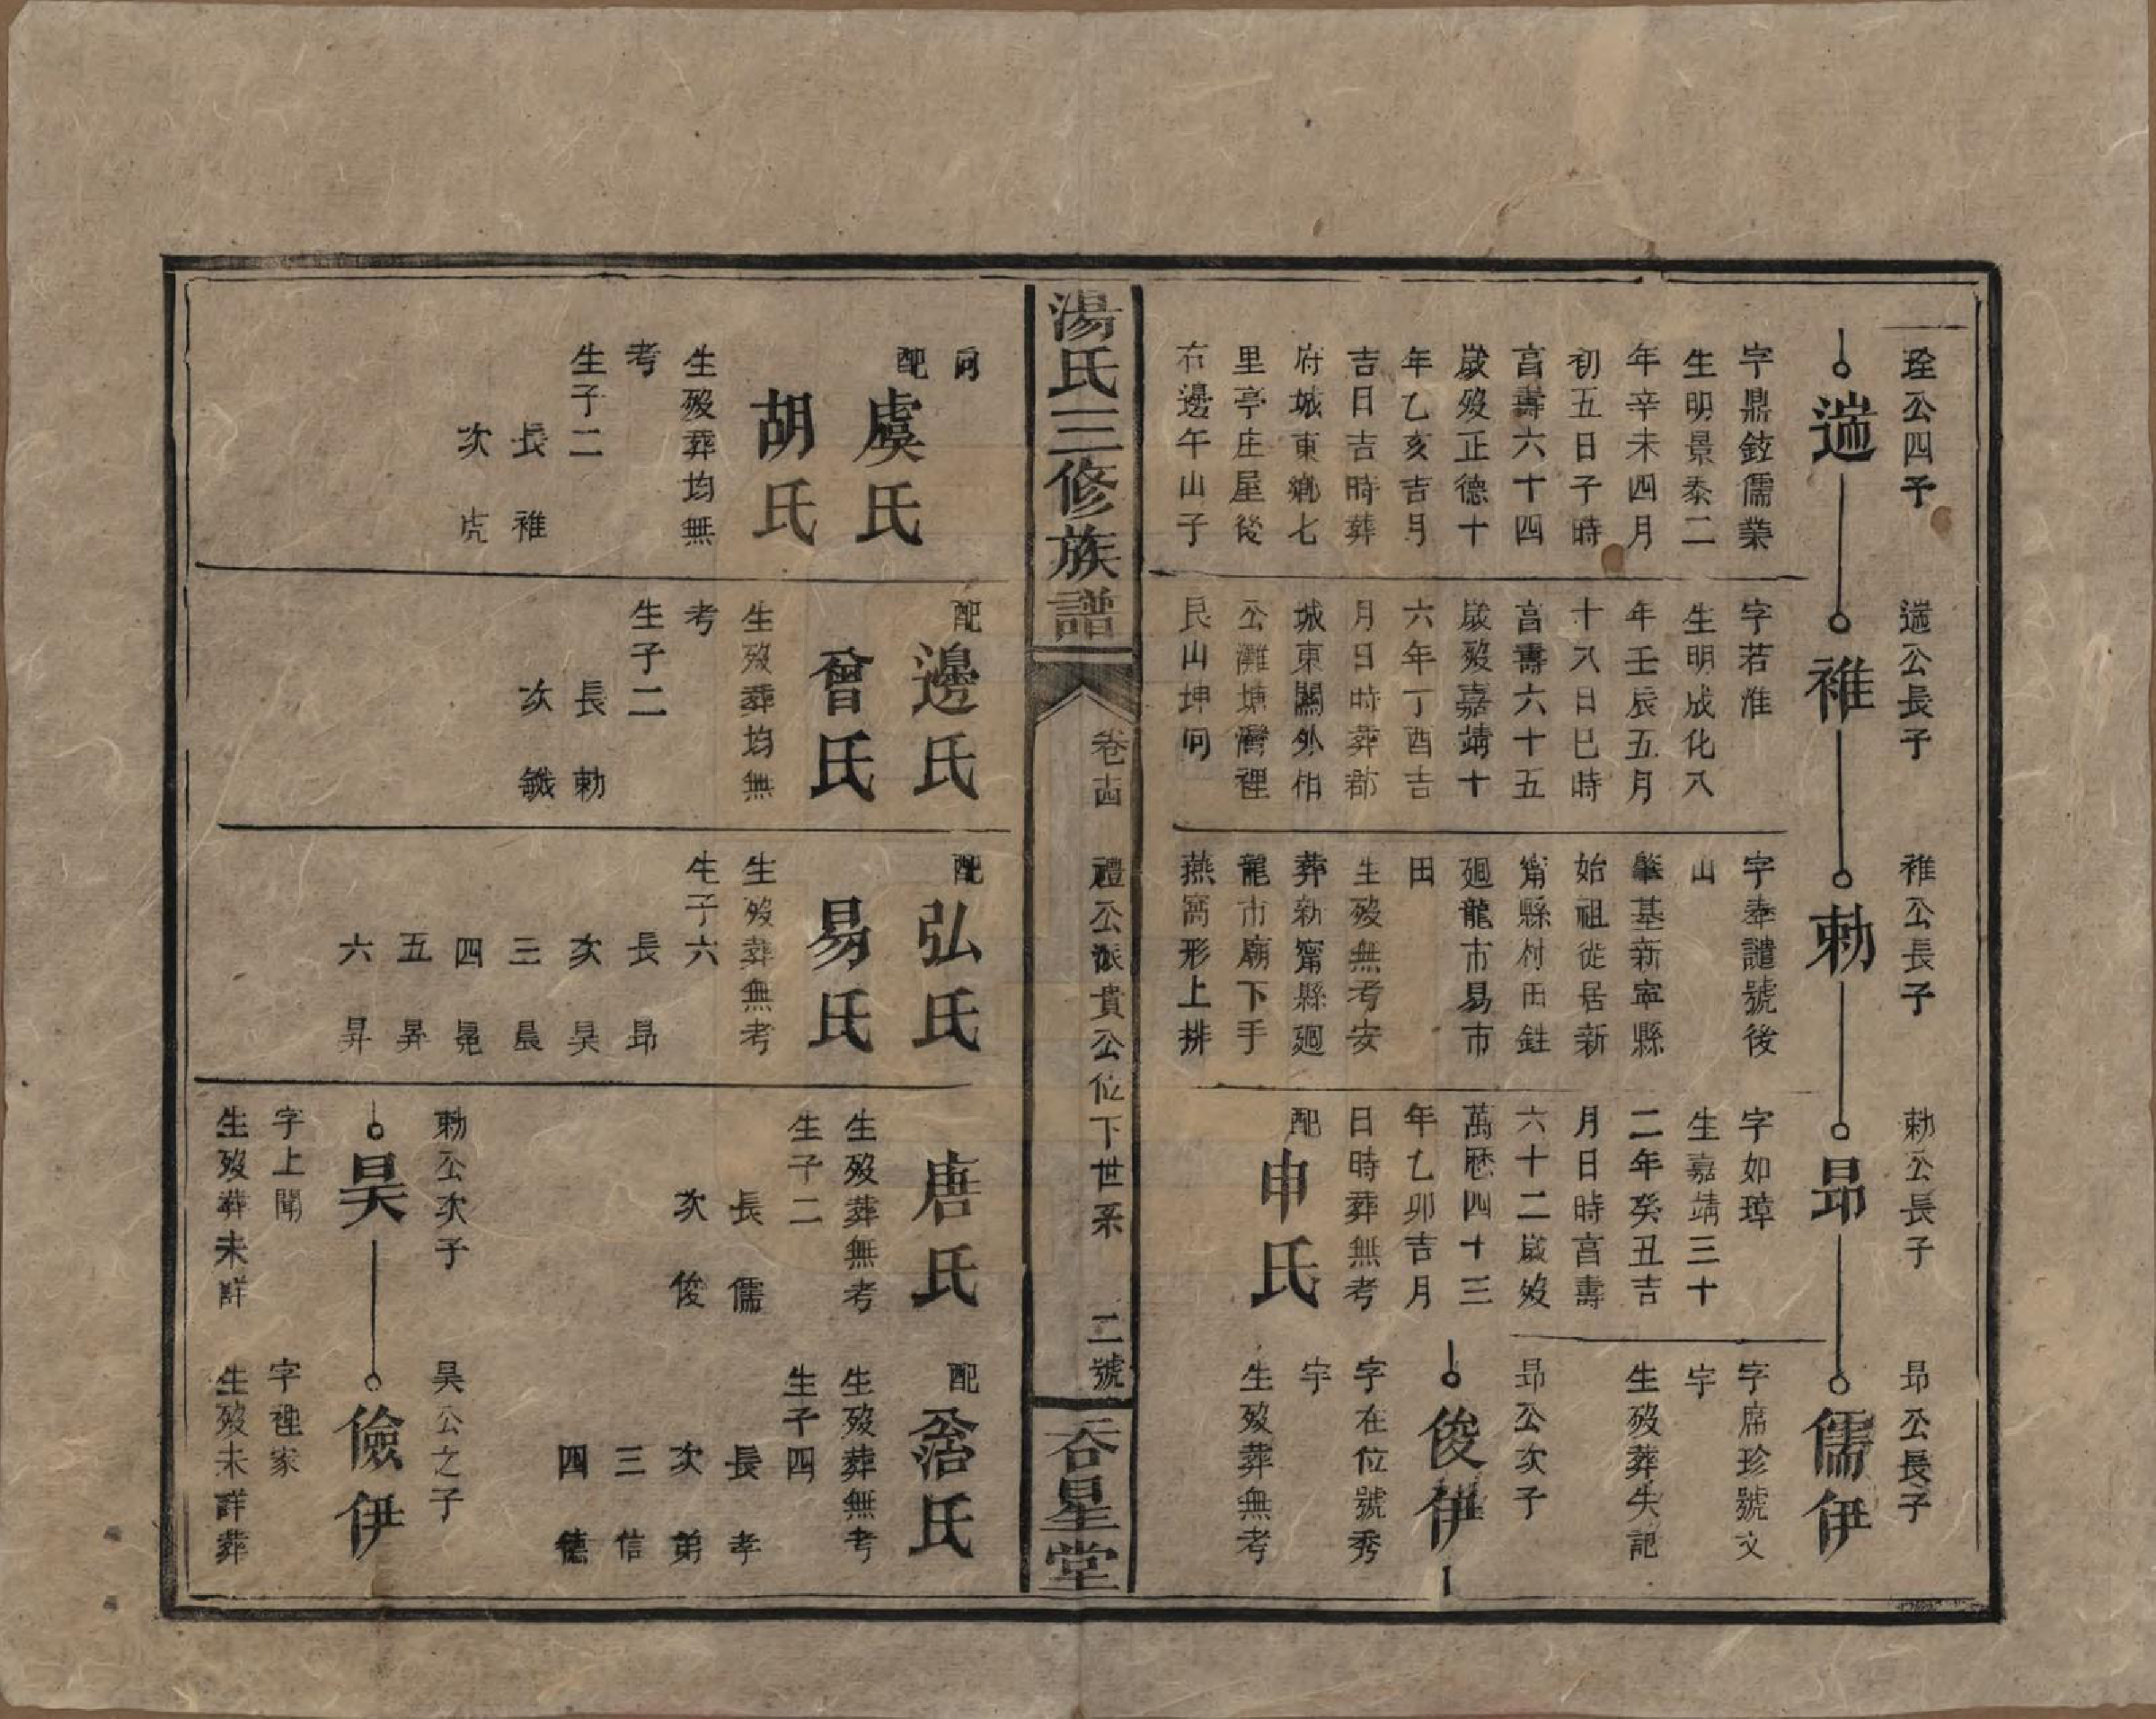 珄公四子
遄
字鼎鉉儒業
生明景泰二
年辛未四月
初五日子時
亯壽六十四
歲歿正德十
年乙亥吉月
吉日吉時葬
府城東鄉七
里亭庄屋後
右邊午山子
遄公長子
稚
字若淮
生明成化八
年壬辰五月
十八日巳時
亯壽六十五
歲歿嘉靖十
六年丁酉吉
月日時葬郡
城東關外相
公灘塘灣裡
艮山坤向
稚公長子
勅
字奉譴號後
山
肇基新寧縣
始祖徙居新
甯縣村田鉒
廻龍市易市
田
生歿無考安
葬新甯縣廻
龍市廟下手
燕窩形上排
勅公長子
昻
字如璋
生嘉靖三十
二年癸丑吉
月日時亯壽
六十二歲歿
萬厯四十三
年乙卯吉月
日時葬無考
配
申氏
昻公長子
儒伊
字席珍號文
宇
生歿葬失記
昻公次子
俊伊
字在位號秀
宇
生歿葬無考
湯氏三修族譜
卷十四
禮公派貴公位下世系
二號
吞星堂
向
配
虞氏
胡氏
生歿葬均無
考
生子二
長 稚
次 虎
配
邊氏
曾氏
生歿葬均無
考
生子二
長 勅
次
配
弘氏
易氏
生歿葬無考
生子六
長 昻
次 昊
三 晨
四 冕
五 昇
六 昇
唐氏
生歿葬無考
生子二
長 儒
次 俊
勅公次子
昊
字上聞
生歿葬未詳
配
氏
生歿葬無考
生子四
長 孝
次 弟
三 信
四 德
昊公之子
儉伊
字裡家
生歿未詳葬